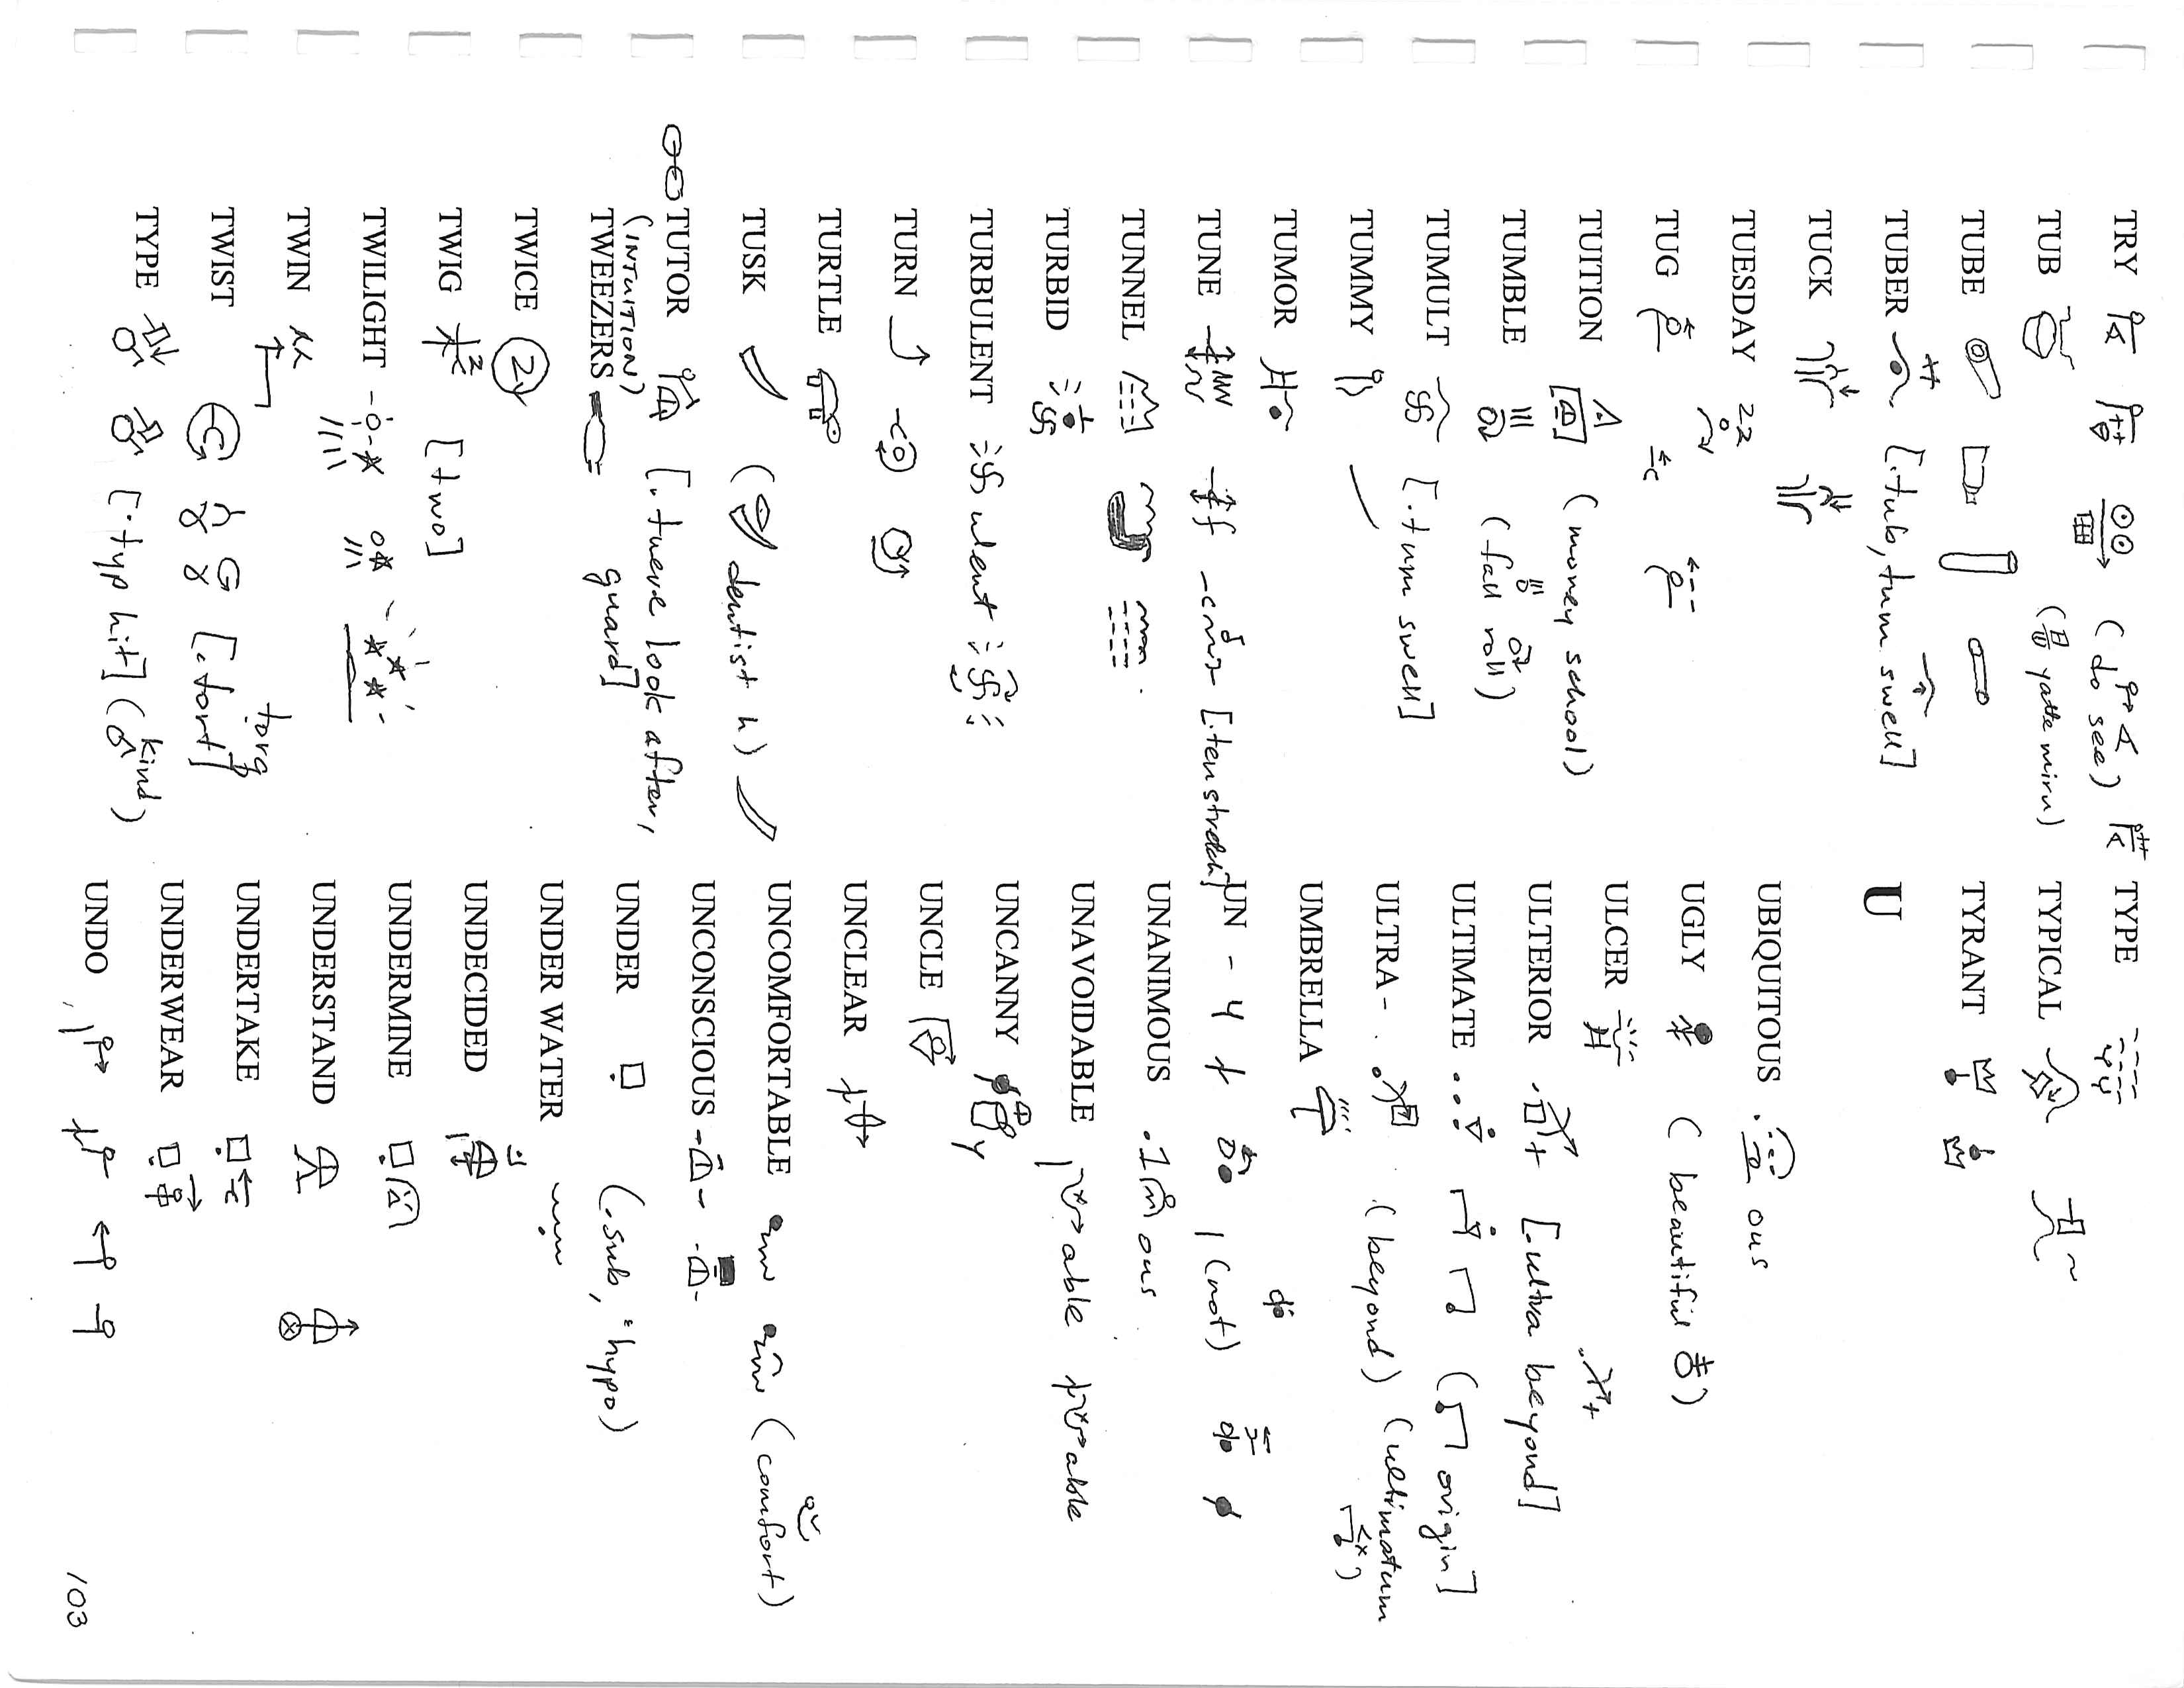 TRY (do see)
(yatte miru)
TUB
TUBE
TUBER [.tub, tum swell]
TUCK
TUESDAY 22
TUG
TUITION (money school)
TUMBLE (fall roll)
TUMULT [.tum swell]
TUMMY
TUMOR
TUNE [.ten stretch]
TUNNEL
TURBID
TURBULENT ulent
TURN
TURTLE
TUSK (dentist n)
TUTOR [.tueve look after, guard]
(INTUITION)
TWEEZERS
TWICE 2
TWIG [two]
TWILIGHT
TWIN
TWIST [.tort] torq
TYPE [.typ hit] (kind)
TYPE
TYPICAL
TYRANT
U
UBIQUITOUS ous
UGLY (beautiful)
ULCER
ULTERIOR [.ultra beyond]
ULTIMATE (origin]
ULTRA- (beyond) (ultimatum)
UMBRELLA
UN - (not)
UNANIMOUS .1 ous
UNAVOIDABLE able able
UNCANNY y
UNCLE
UNCLEAR
UNCOMFORTABLE (comfort)
UNCONSCIOUS
UNDER (.sub, "hypo)
UNDER WATER
UNDECIDED
UNDERMINE
UNDERSTAND
UNDERTAKE
UNDERWEAR
UNDO
103